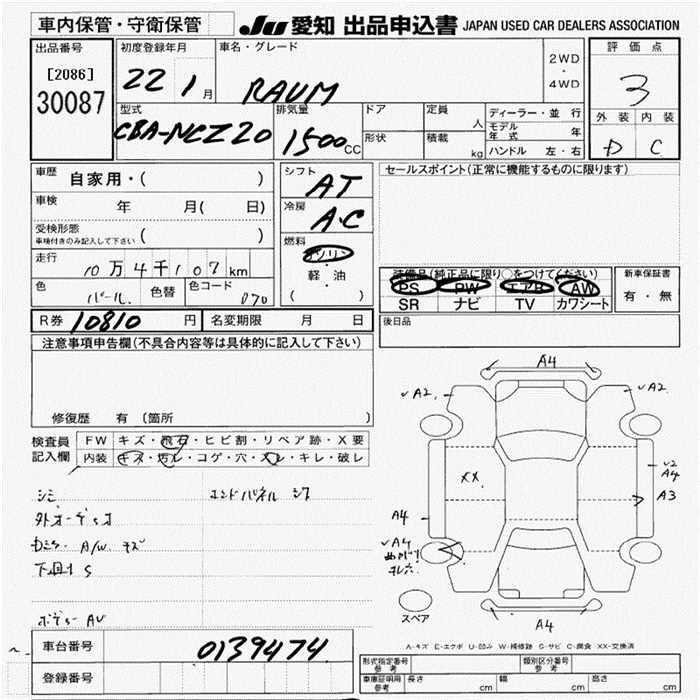 車内保管・守衛保管
JU 愛知 出品申込書 JAPAN USED CAR DEALERS ASSOCIATION
出品番号
[2086]
30087
初度登録年月
22 1 月
車名・グレード
RAUM
2WD
・
4WD
評価点
3
外装 内装
D C
型式
CBA-NCZ20
排気量
1500 CC
ドア
形状
定員
人
積載
kg
ディーラー・並行
モデル年式 年
ハンドル 左・右
車歴
自家用・( )
車検
年 月( 日)
受検形態
車検付きのみ記入して下さい ( )
走行
10万4千107km
色
パール.
色替
色コード
070
シフト
AT
冷房
A.C
燃料
ガソリン
・
軽・油
( )
セールスポイント(正常に機能するものに限ります)
装備品(純正品に限り○をつけてください)
PS PW エアB AW
SR ナビ TV カワシート
新車保証書
有・無
後日品
R券 10810 円
名変期限 月 日
注意事項申告欄(不具合内容等は具体的に記入して下さい)
修復歴 有 (箇所 )
検査員記入欄
FW キズ・飛石・ヒビ割・リペア跡・X要
内装 キズ・汚レ・コゲ・穴・スレ・キレ・破レ
シミ
エンドパネル
A/W キズ
下回り S
A4
A2
A2
XX
A4
A3
A4
A4
A4
スペア
A-キズ E-エクボ U-凹み W-補修跡 S-サビ C-腐食 XX-交換済
車台番号
0139474
登録番号
形式指定番号
参考
類別区分番号
参考
車庫証明用
参考
長さ cm
幅 cm
高さ cm